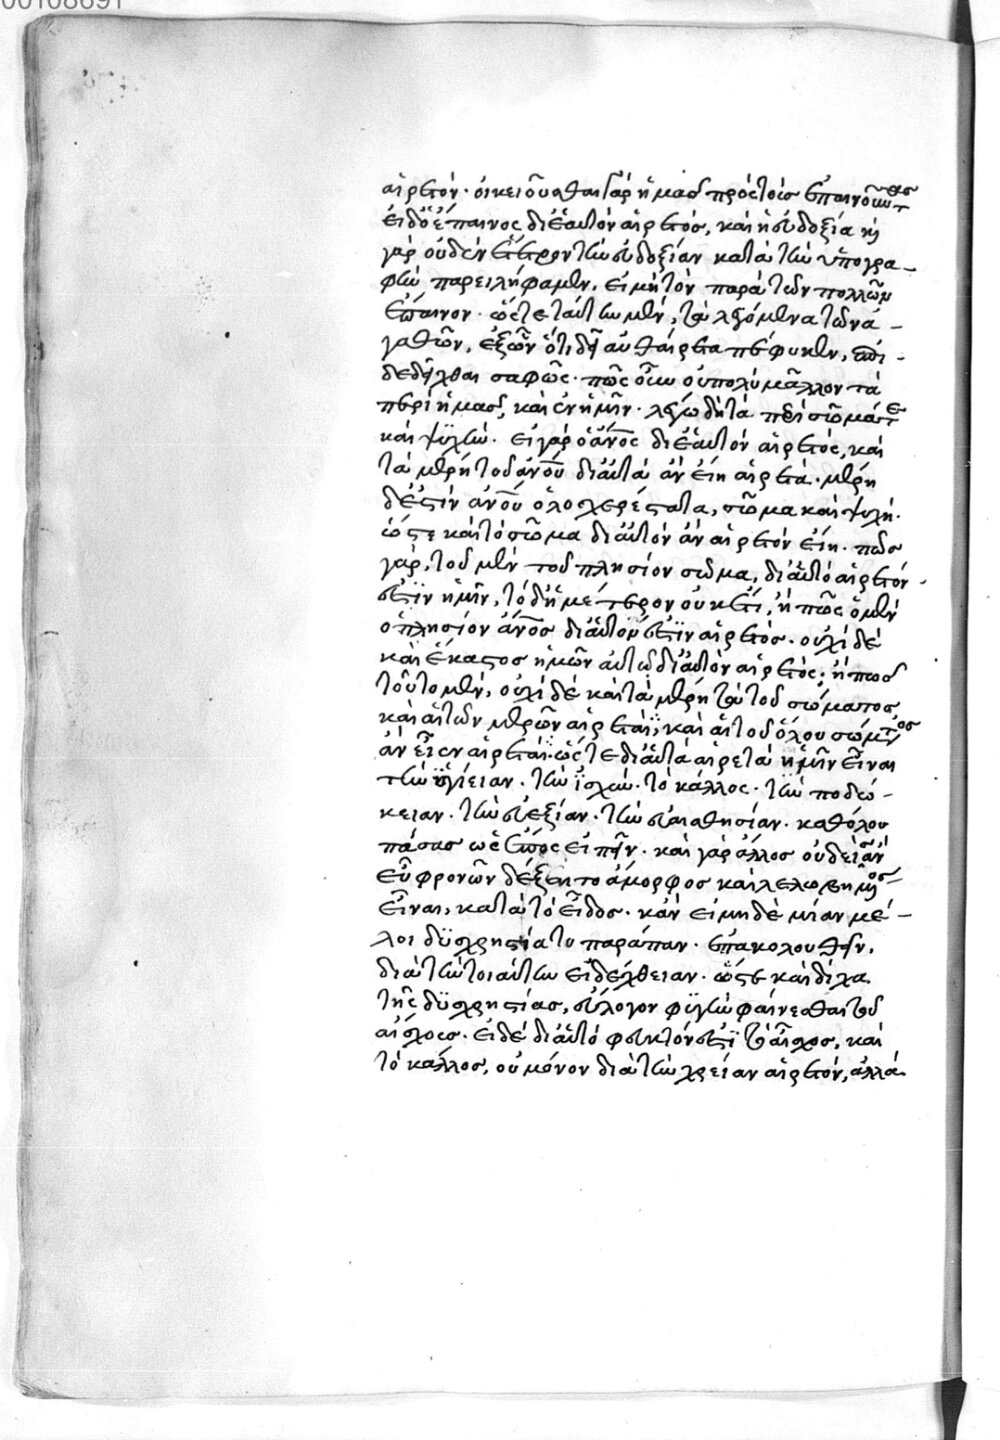 00108691
αἱρετόν· οἰκειοῦσθαι γὰρ ἡμᾶς πρὸς τοὺς ἐπαινοῦντας
εἰ δὲ ὁ ἔπαινος δι' ἑαυτὸν αἱρετός, καὶ ἡ εὐδοξία κὴ
γὰρ οὐδὲν ἕτερον τὴν εὐδοξίαν κατὰ τὴν ὑπογρα-
φὴν παρειλήφαμεν, εἰ μὴ τὸν παρὰ τῶν πολλῶν
ἔπαινον· ὥςτε ταύτη μὲν, τὰ λεγόμενα τῶν ἀ-
γαθῶν, ἐξ ὧν ὅτι δι' αὑτὰ αἱρετὰ πέφυκεν, ἐπι-
δέδεικται σαφῶς· πῶς οὖν οὐ πολὺ μᾶλλον τὰ
περὶ ἡμᾶς, καὶ ἐν ἡμῖν· λέγω δὴ τὰ περὶ σῶμα τε
καὶ ψυχήν· εἰ γὰρ ὁ ἄνος δι' ἑαυτὸν αἱρετός, καὶ
τὰ μέρη τοῦ ἀνου δι' αὑτὰ ἂν εἴη αἱρετά· μέρη
δέ ἐστιν ἀνου ὁλοσχερέστατα, σῶμα καὶ ψυχή.
ὥςτε καὶ τὸ σῶμα δι' αὑτὸν ἂν αἱρετὸν εἴη· πῶς
γὰρ, τοῦ μὲν τοῦ πλησίον σῶμα, δι' αὑτὸ αἱρετόν
ἐστιν ἡμῖν, τὸ δ' ἡμέτερον οὐκ ἔτι, ἢ πῶς ὁ μὲν
ὁ πλησίον ἄνος δι' αὑτόν ἐστιν αἱρετός· οὐχὶ δὲ
καὶ ἕκαστος ἡμῶν αὑτῷ δι' αὑτὸν αἱρετός; ἢ πῶς
τοῦτο μὲν, οὐχὶ δὲ καὶ τὰ μέρη τὰ τοῦ σώματος
καὶ αἱ τῶν μερῶν αἱρεταὶ, καὶ αἱ τοῦ ὅλου σώματος
ἂν εἶεν αἱρεταὶ· ὥςτε δι' αὑτὰ αἱρετὰ ἡμῖν εἶναι
τὴν ὑγίειαν· τὴν ἰσχύν· τὸ κάλλος· τὴν ποδώ-
κειαν· τὴν εὐεξίαν· τὴν εὐαισθησίαν· καθόλου
πάσας ὡς ἔπος εἰπεῖν· καὶ γὰρ ἄλλος οὐδεὶς ἂν
εὖ φρονῶν δέξαιτο ἄμορφος καὶ λελωβημένος
εἶναι, κατὰ τὸ εἶδος· κἂν εἰ μηδὲ μίαν μέ-
λοι δυσχρηστία τὸ παράπαν· ἐπακολουθεῖν,
διὰ τὴν τοιαύτην εἰδέχθειαν· ὥςτε καὶ δίχα
τῆς δυσχρηστίας, εὔλογον φυγὴν φαίνεσθαι τοῦ
αἴσχους· εἰ δὲ δι' αὑτὸ φευκτόν ἐστι τὸ αἶσχος, καὶ
τὸ κάλλος, οὐ μόνον διὰ τὴν χρείαν αἱρετόν, ἀλλὰ